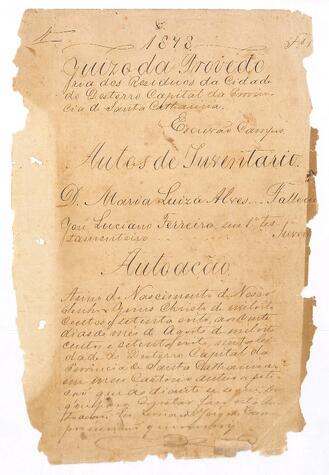 1878
Juizo da Provedo
ria dos Residuos da Cidade
do Desterro Capital da Provin
cia de Santa Catharina.
Escrivão Campos
Autos de Inventario.
D. Maria Luiza Alves... Fallecida
José Luciano Ferreira, seu 1º tes
tamenteiro Inven
Autoação
Anno do Nascimento de Nosso
Senhor Jesus Christo de mil oito
centos e setenta e oito, aos
dias do mes de Agosto de mil oito
centos e setenta e oito, nesta Ci
dade do Desterro Capital da
Provincia de Santa Catharina
em meu Cartorio autuo a peti
ção que ao diante se segue